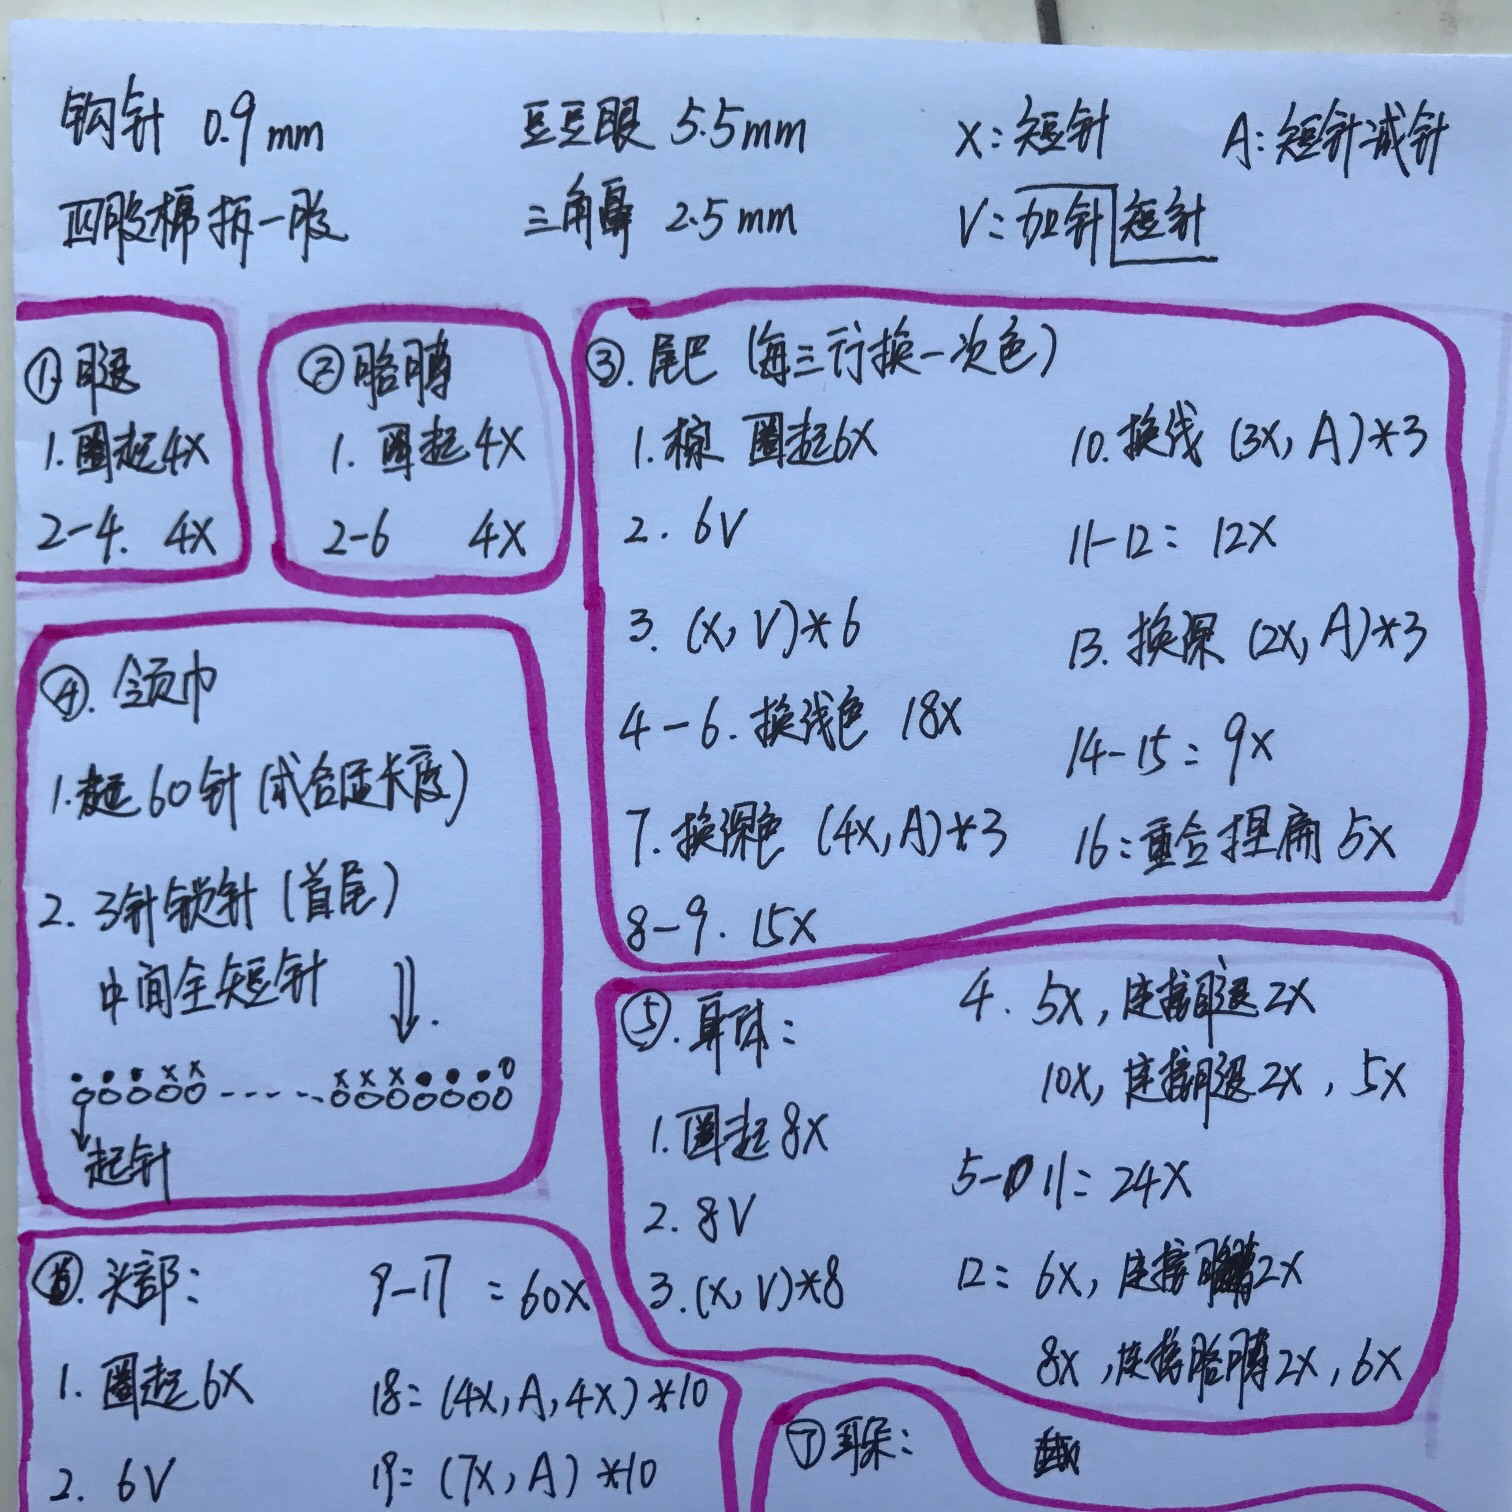 钩针 0.9mm
四股棉拆一股
豆豆眼 5.5mm
三角鼻 2.5mm
X:短针
A:短针减针
V:加针短针
①腿
1.圈起4X
2-4. 4X
②胳膊
1.圈起4X
2-6 4X
③.尾巴(每三行换一次色)
1.棕 圈起6X
2. 6V
3. (X,V)*6
4-6.换浅色 18X
7.换深色 (4X,A)*3
8-9. 15X
10.换浅 (3X,A)*3
11-12: 12X
13.换深 (2X,A)*3
14-15: 9X
16:重合捏扁 5X
④.领巾
1.起60针(试合适长度)
2. 3针锁针(首尾)
中间全短针
起针
⑤.身体:
1.圈起8X
2. 8V
3.(X,V)*8
4. 5X,连接腿2X
10X,连接腿2X,5X
5-11: 24X
12: 6X,连接胳膊2X
8X,连接胳膊2X,6X
⑥.头部:
1. 圈起6X
2. 6V
9-17 :60X
18:(4X,A,4X)*10
19:(7X,A)*10
⑦耳朵: